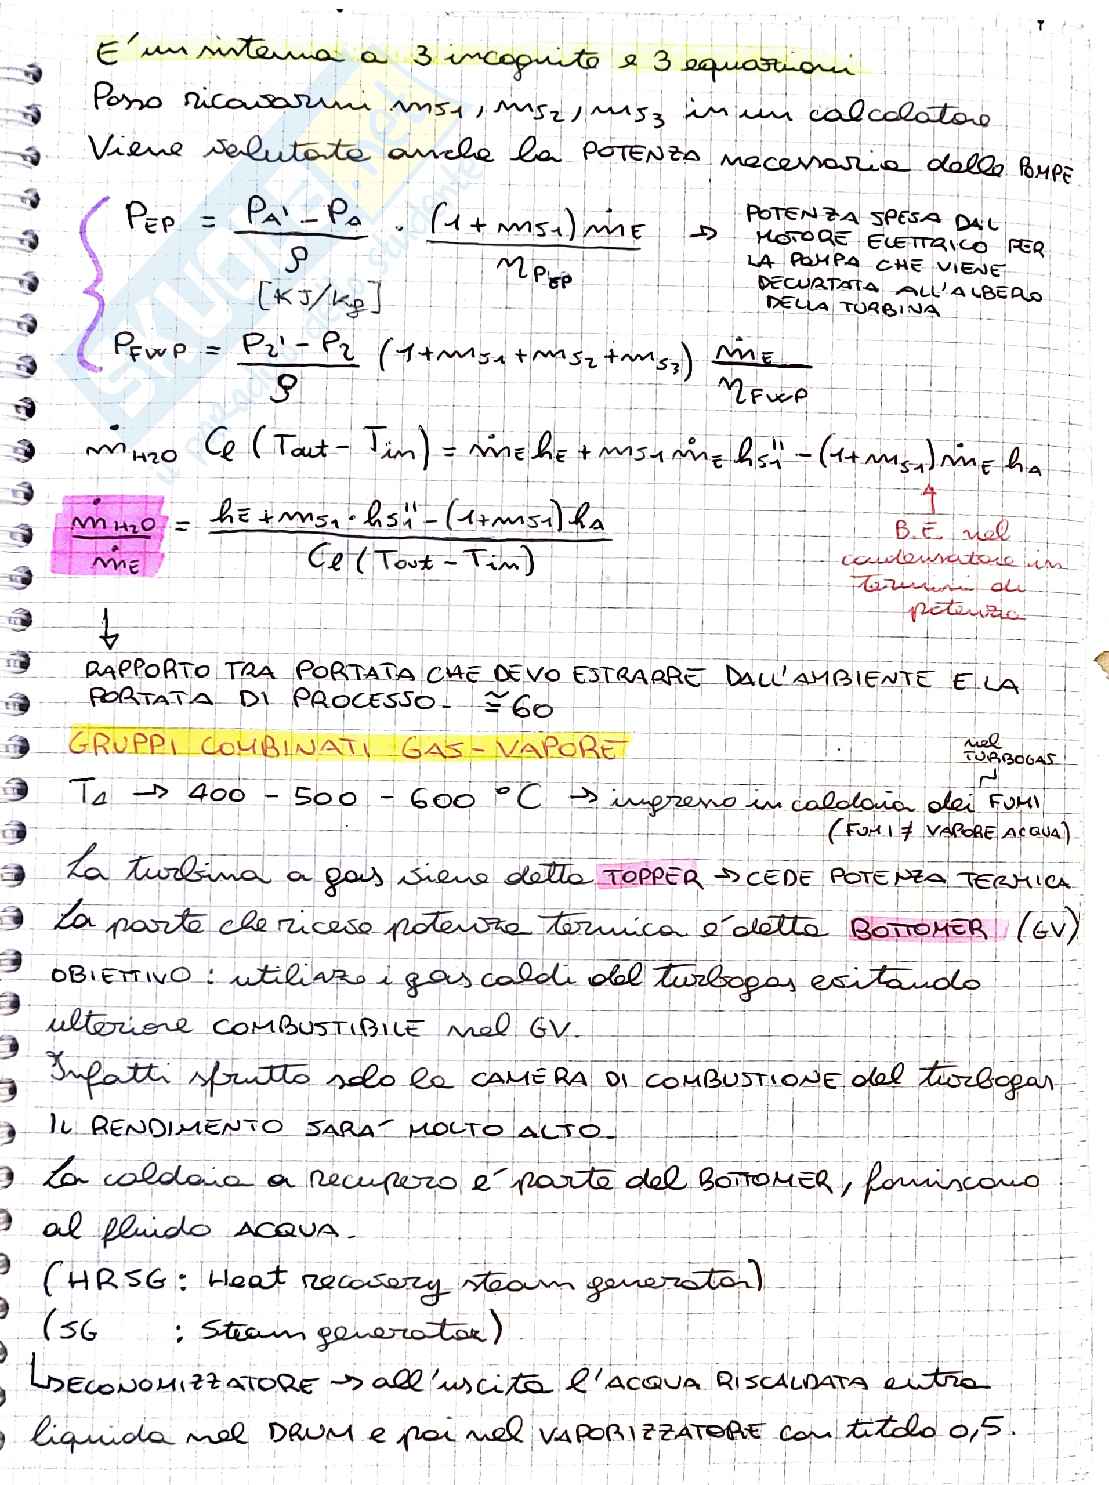 E' un sistema a 3 incognite e 3 equazioni
Posso ricavarmi mS1, mS2, mS3 in un calcolatore
Viene valutata anche la POTENZA necessaria delle POMPE
P_EP = (P_A' - P_A)/ρ · (1 + m_S1) ṁ_E / η_PEP → POTENZA SPESA DAL
MOTORE ELETTRICO PER
LA POMPA CHE VIENE
DECURTATA ALL'ALBERO
DELLA TURBINA
[KJ/Kg]
P_FWP = (P_2' - P_2)/ρ (1 + m_S1 + m_S2 + m_S3) ṁ_E / η_FWP
ṁ_H2O Cl (Tout - Tin) = ṁ_E h_E + m_S1 ṁ_E h_S1'' - (1 + m_S1) ṁ_E h_A
ṁ_H2O / ṁ_E = (h_E + m_S1 · h_S1'' - (1 + m_S1) h_A) / (Cl (Tout - Tin))
B.E. nel
condensatore in
termini di
potenza
↓
RAPPORTO TRA PORTATA CHE DEVO ESTRARRE DALL'AMBIENTE E LA
PORTATA DI PROCESSO. ≅ 60
GRUPPI COMBINATI GAS-VAPORE
nel
TURBOGAS
T4 → 400 - 500 - 600 °C → ingresso in caldaia dei FUMI
(FUMI ≠ VAPORE ACQUA)
La turbina a gas viene detta TOPPER → CEDE POTENZA TERMICA
La parte che riceve potenza termica e' detta BOTTOMER (GV)
OBIETTIVO : utilizzo i gas caldi del turbogas evitando
ulteriore COMBUSTIBILE nel GV.
Infatti sfrutto solo la CAMERA DI COMBUSTIONE del turbogas
IL RENDIMENTO SARA' MOLTO ALTO.
La caldaia a recupero e' parte del BOTTOMER, forniscono
al fluido ACQUA.
(HRSG : Heat recovery steam generator)
(SG : Steam generator)
↳ ECONOMIZZATORE → all'uscita l'ACQUA RISCALDATA entra
liquida nel DRUM e poi nel VAPORIZZATORE con titolo 0,5.